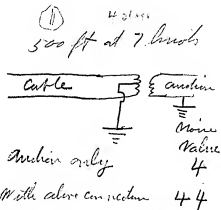 11
500 ft at 7 knots
Cable audion
noise
Values
audion only 4
With above connection 44